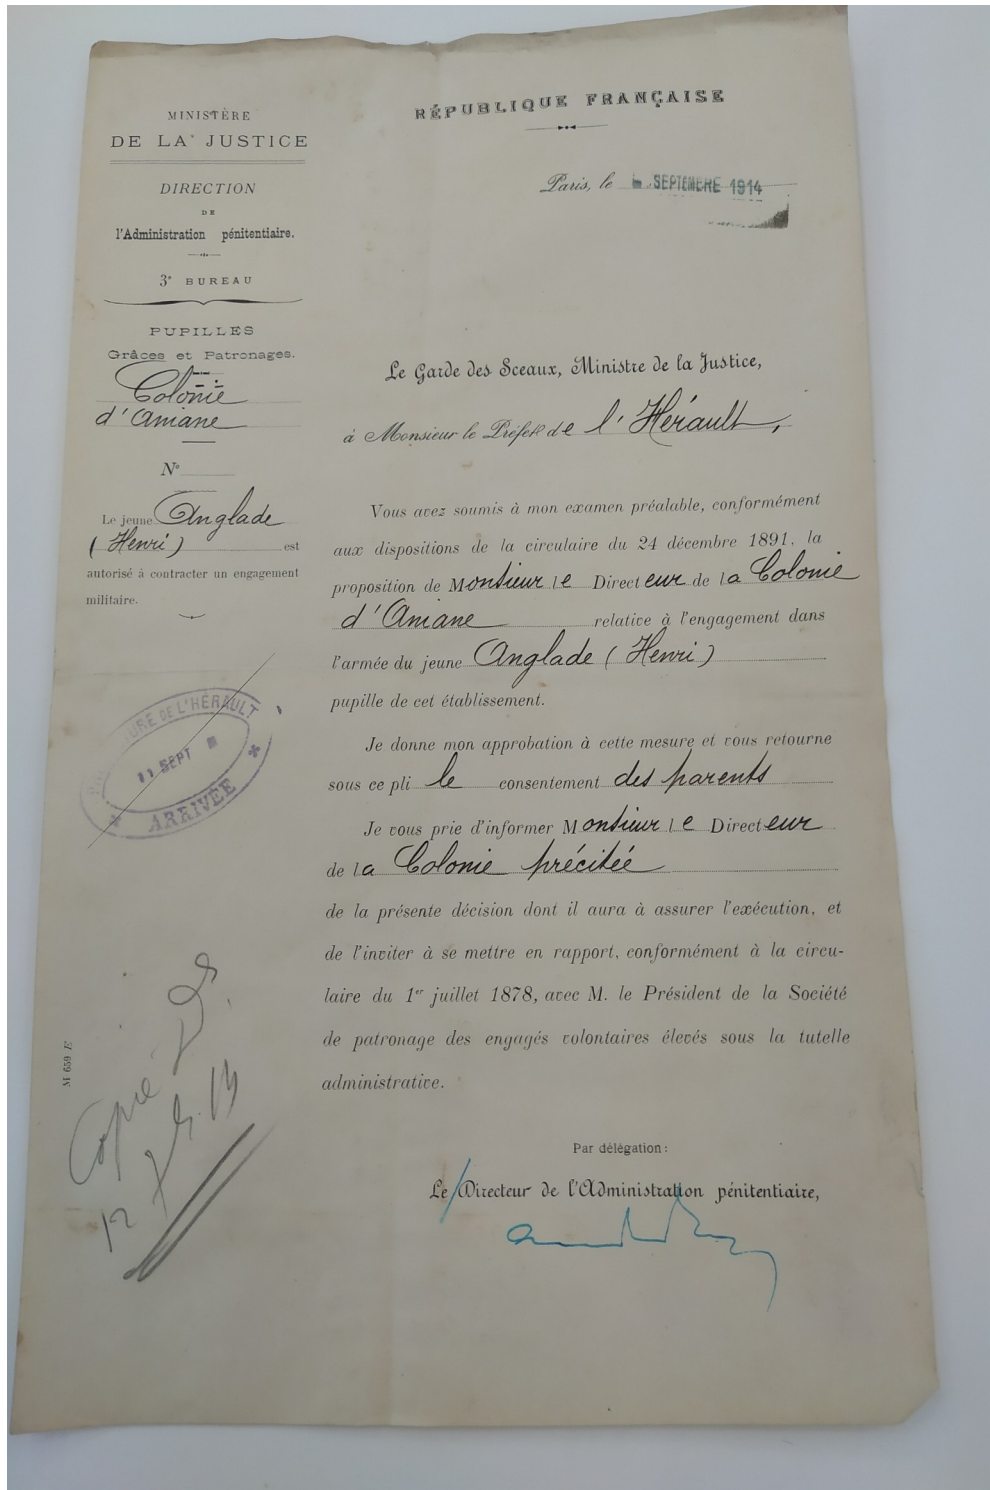 MINISTÈRE
DE LA JUSTICE
DIRECTION
DE
l'Administration pénitentiaire.
3e BUREAU
PUPILLES
Grâces et Patronages.
Colonie
d'Aniane
No
Le jeune Anglade
(Henri) est
autorisé à contracter un engagement
militaire.
RÉPUBLIQUE FRANÇAISE
Paris, le SEPTEMBRE 1914
Le Garde des Sceaux, Ministre de la Justice,
à Monsieur le Préfet de l'Hérault,
Vous avez soumis à mon examen préalable, conformément
aux dispositions de la circulaire du 24 décembre 1891, la
proposition de Monsieur le Directeur de la Colonie
d'Aniane relative à l'engagement dans
l'armée du jeune Anglade (Henri)
pupille de cet établissement.
Je donne mon approbation à cette mesure et vous retourne
sous ce pli le consentement des parents
Je vous prie d'informer Monsieur le Directeur
de la Colonie précitée
de la présente décision dont il aura à assurer l'exécution, et
de l'inviter à se mettre en rapport, conformément à la circu-
laire du 1er juillet 1878, avec M. le Président de la Société
de patronage des engagés volontaires élevés sous la tutelle
administrative.
Par délégation :
Le Directeur de l'Administration pénitentiaire,
DE L'HÉRAULT
11 SEPT
ARRIVÉE
M 659 E
Copie
12